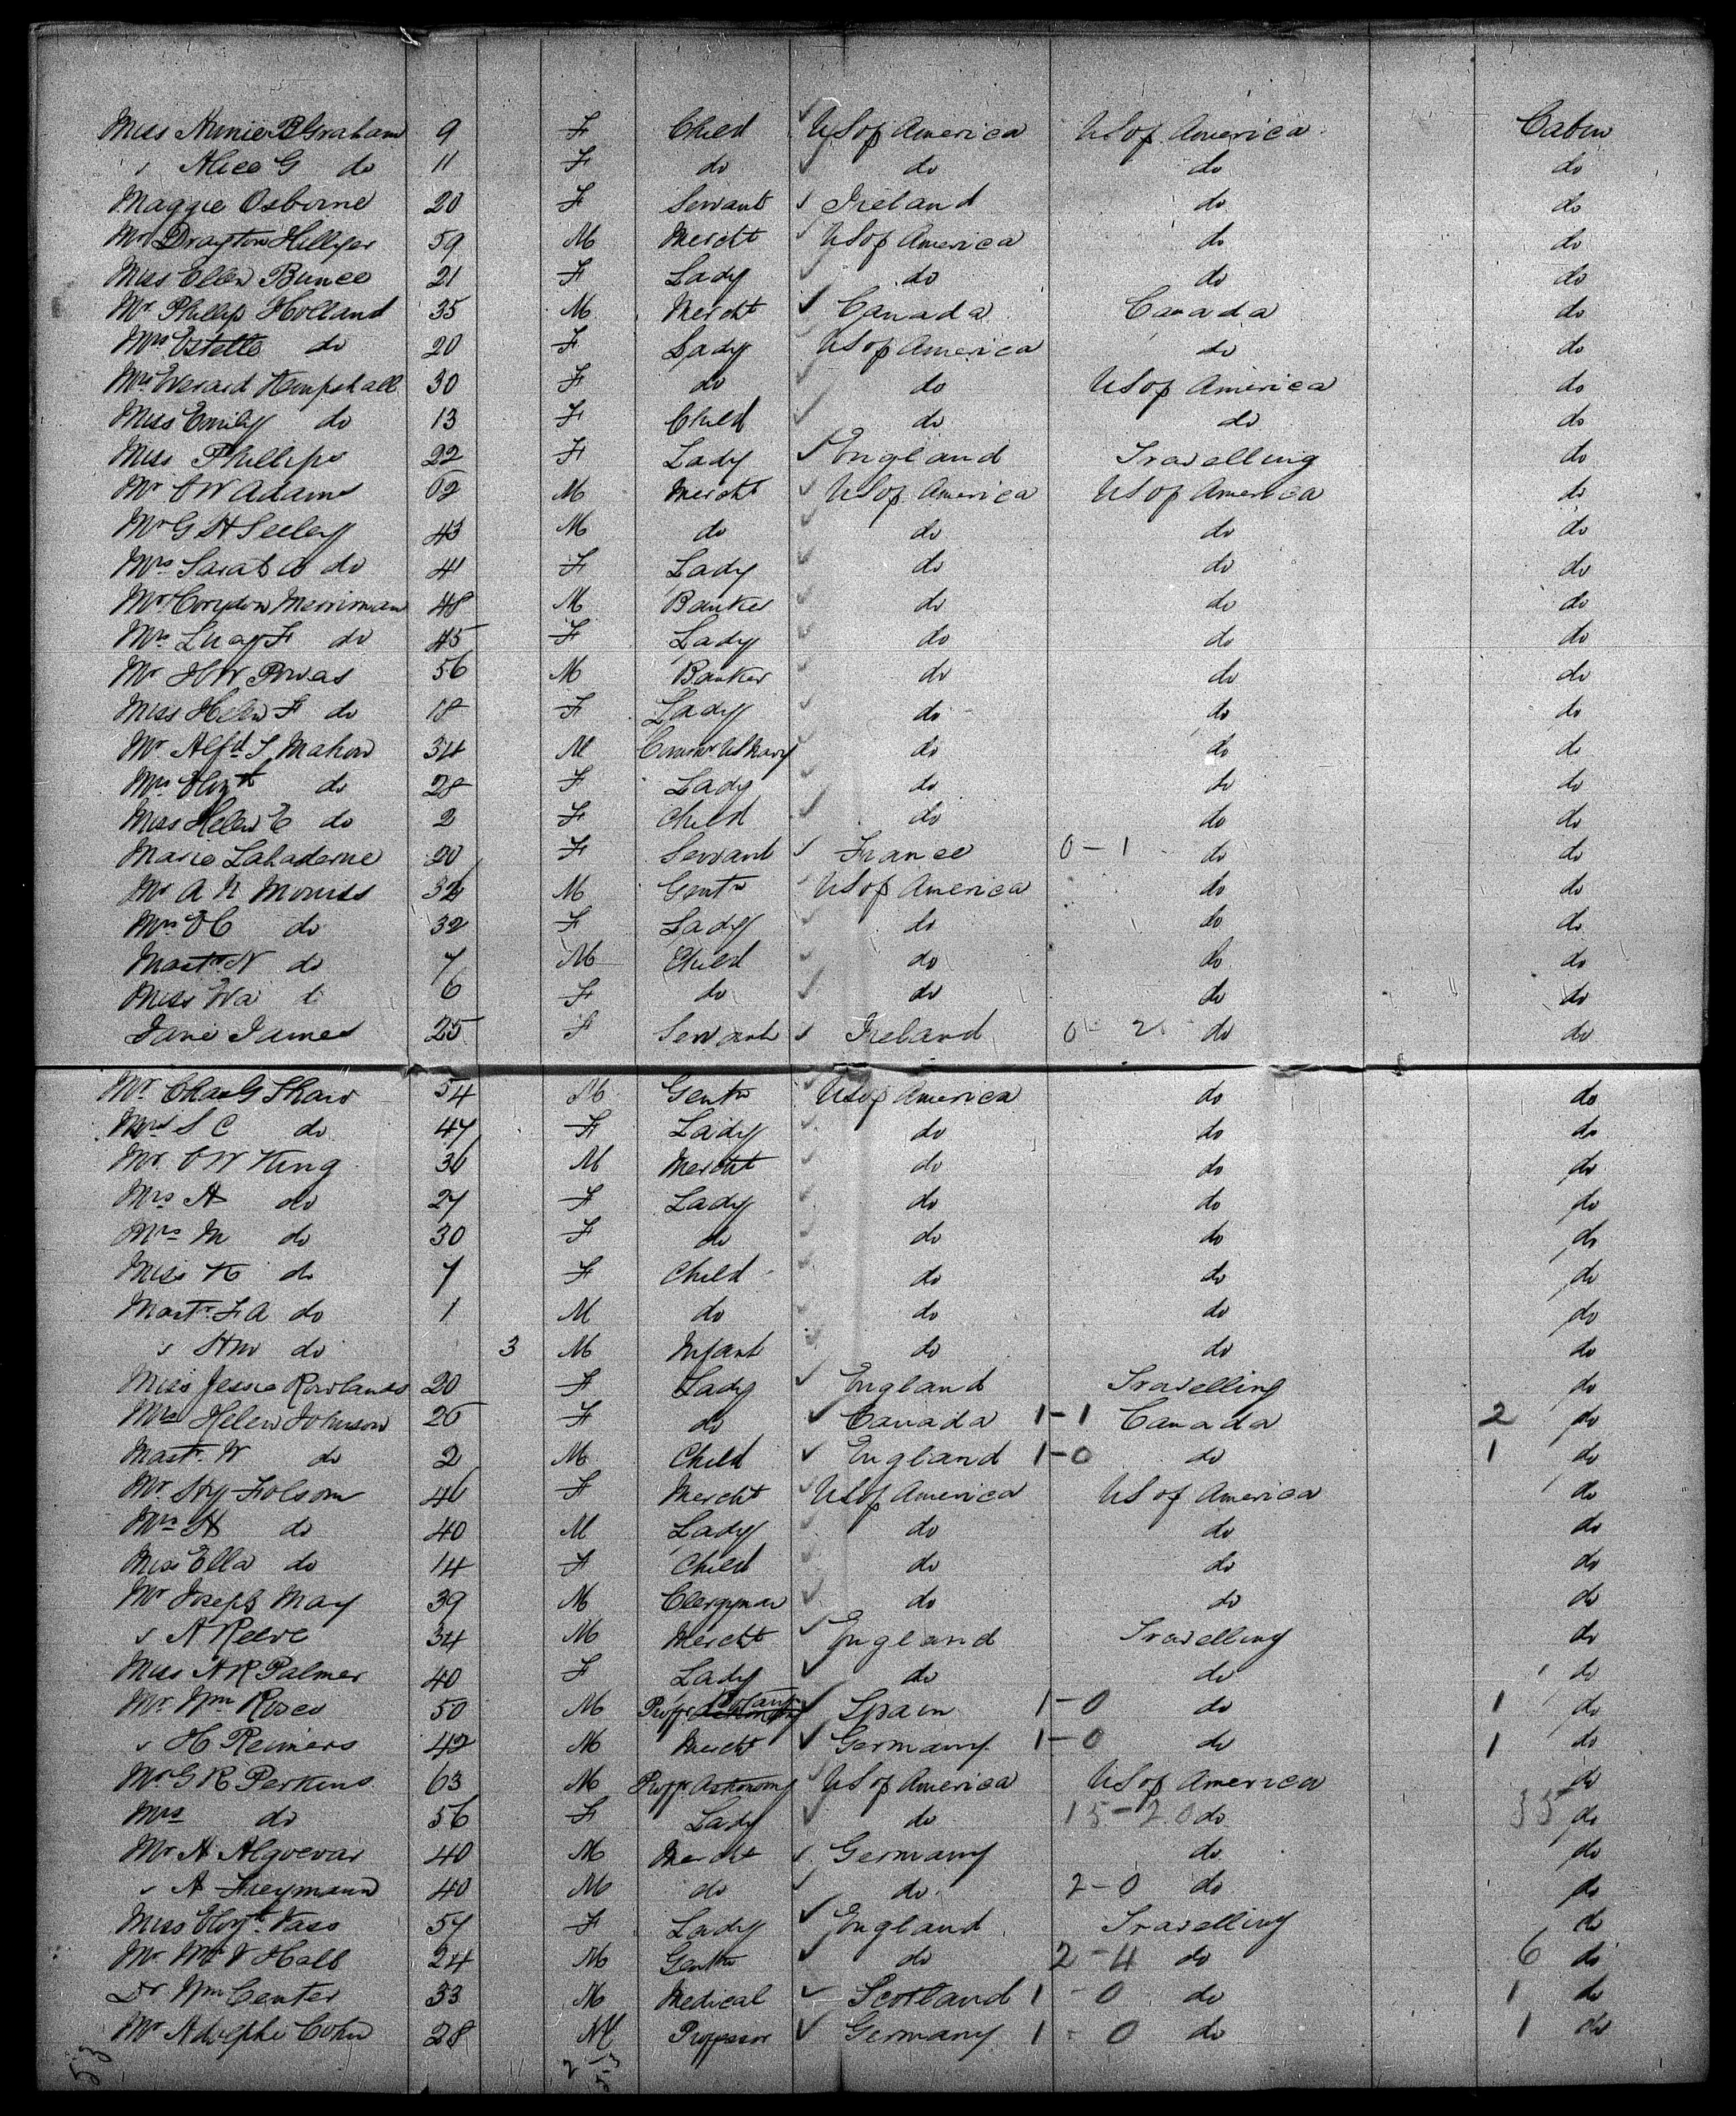 Miss Annie B Graham 9 F Child US of America US of America Cabin
" Alice G do 11 F do do do do
Maggie Osborne 20 F Servant Ireland do do
Mr Drayton Hillyer 59 M Mercht US of America do do
Miss Ellen Bunce 21 F Lady do do do
Mr Philip Holland 35 M Mercht Canada Canada do
Mrs Estelle do 20 F Lady US of America do do
Mrs Everard Kempshall 30 F do do US of America do
Miss Emily do 13 F Child do do do
Miss Phillips 22 F Lady England Travelling do
Mr W Adams 62 M Mercht US of America US of America do
Mr G H Seeley 43 M do do do do
Mrs Sarah do 41 F Lady do do do
Mr Corydon Merriman 48 M Banker do do do
Mrs Lucy F do 45 F Lady do do do
Mr H W 56 M Banker do do do
Miss Helen F do 18 F Lady do do do
Mr Alfd T Mahan 34 M Commr US Navy do do do
Mrs Elizth do 28 F Lady do do do
Miss Helen E do 2 F Child do do do
Marie 20 F Servant France 0-1 do do
Mr A N Morriss M Gentn US of America do do
Mrs do 32 F Lady do do do
Mastr N do 7 M Child do do do
Miss Eva 6 F do do do do
Jane James 25 F Servant Ireland 0-2 do do
Mr Chas G Shaw 54 M Gentn US of America do do
Mrs S C do 47 F Lady do do do
Mr W King M Mercht do do do
Mrs A do 27 F Lady do do do
Mrs M do 30 F do do do do
Miss K do 7 F Child do do do
Mastr F A do 1 M do do do do
" do 3 M Infant do do do
Miss Jessie Rowlands 20 F Lady England Travelling do
Mrs Helen Johnson F do Canada 1-1 Canada 2 do
Mastr W do 2 M Child England 1-0 do 1 do
Mr Hy Folsom 46 F Mercht US of America US of America do
Mrs H do 40 M Lady do do do
Miss Ella do 14 F Child do do do
Mr Joseph May 39 M Clergyman do do do
" A Reeve 34 M Mercht England Travelling do
Miss A R Palmer 40 F Lady do do do
Mr Wm 50 M Proffr Botany Spain 1-0 do 1 do
" H Reimers 42 M Mercht Germany 1-0 do 1 do
Mr G R Perkins 63 M Proffr Astronomy US of America US of America do
Mrs do 56 F Lady do 15-20 do 35 do
Mr A 40 M Mercht Germany do do
" A 40 M do do 2-0 do do
Miss Elizth Vass 57 F Lady England Travelling do
Mr Hall 24 M Gentn do 2-4 do 6 do
Dr Wm Center 33 M Medical Scotland 1-0 do 1 do
Mr Adolphe Cohn 28 M Proffessor Germany 1-0 do 1 do
53